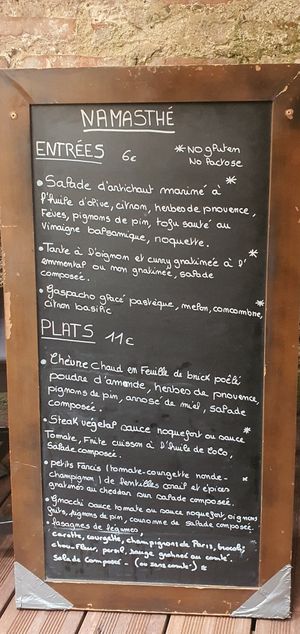 NAMASTHÉ
ENTRÉES 6€
* No gluten
No lactose
• Salade d'artichaut mariné à *
l'huile d'olive, citron, herbes de provence,
Fèves, pignons de pin, tofu sauté au
vinaigre balsamique, roquette.
• Tarte à l'oignon et curry gratinée à l' *
emmental ou non gratinée, salade
composée.
• Gaspacho glacé pastèque, melon, concombre, *
citron basilic
PLATS 11€
• Chèvre chaud en feuille de brick poêlé
poudre d'amande, herbes de provence,
pignons de pin, arrosé de miel, salade
composée.
• Steak végétal sauce roquefort ou sauce *
Tomate, Frite cuisson à l'huile de coco,
Salade composée.
• petits Farcis (tomate-courgette ronde- *
champignon) de lentilles corail et épices
gratinés au cheddar sur salade composée.
• Gnocchi sauce tomate ou sauce roquefort, oignons
frits, pignons de pin, couronne de salade composée.
• Lasagnes de légumes,
carotte, courgette, champignons de Paris, brocoli,
chou-fleur, persil, sauge gratiné au comté.
Salade composée - (ou sans comté) *